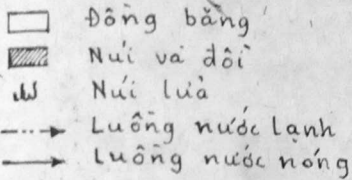 Đồng bằng
Núi và đồi
Núi lửa
Luồng nước lạnh
Luồng nước nóng